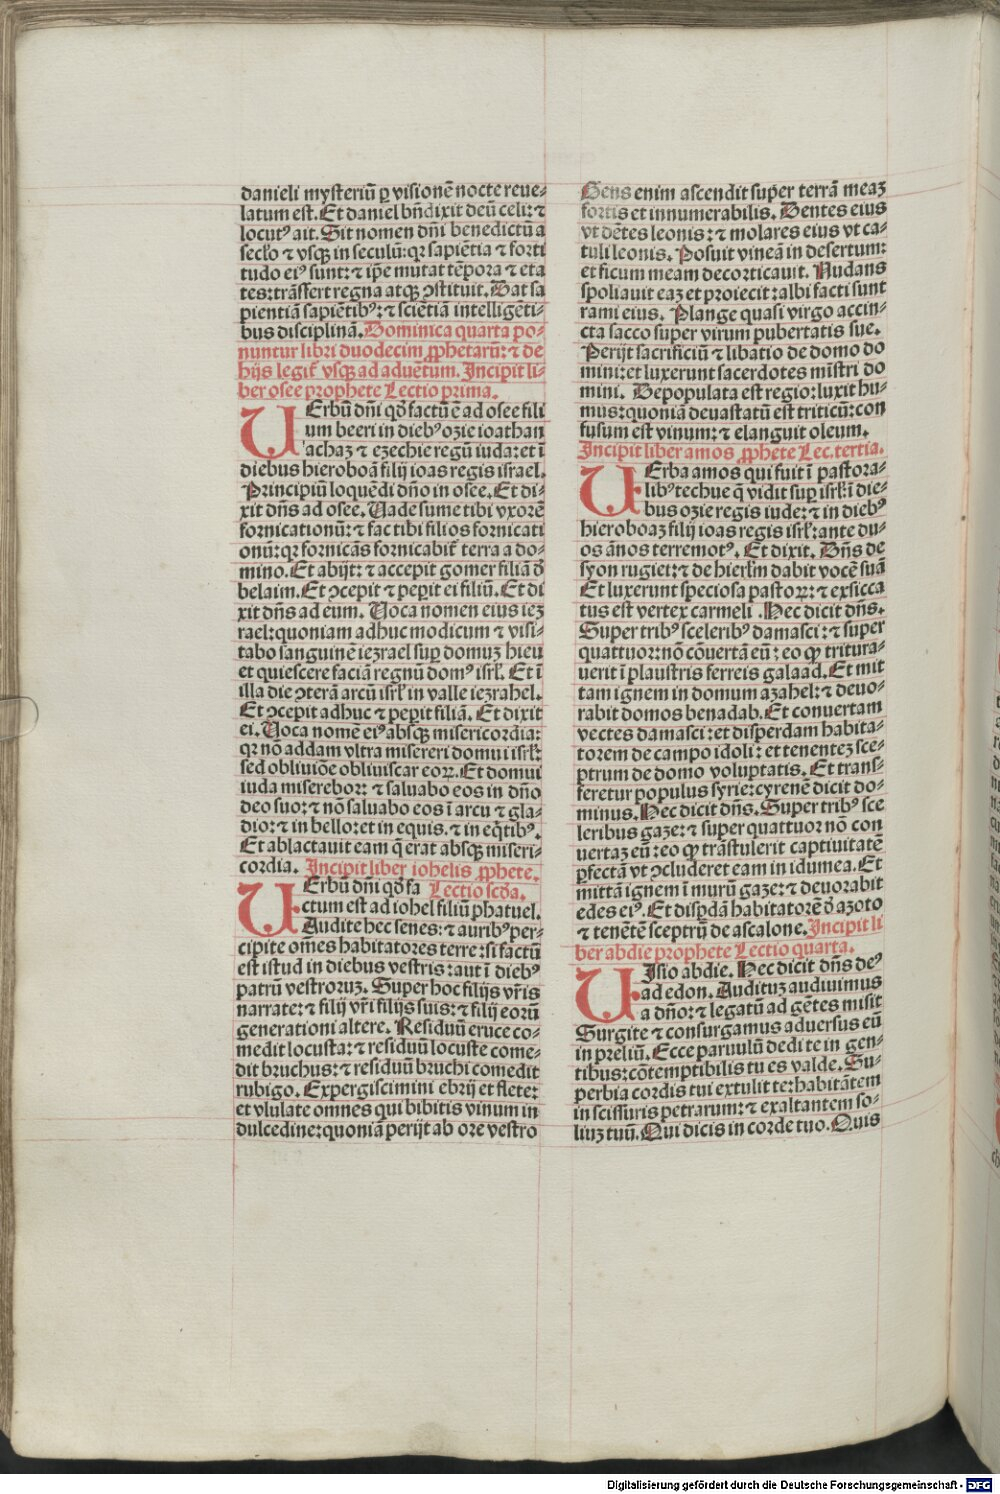 danieli mysteriū ꝑ visionē nocte reue⸗
latum est. Et daniel bn̄dixit deū celi: ⁊
locutꝰ ait. Sit nomen dn̄i benedictū a
secl̓o ⁊ vsqꝫ in seculū: qꝛ sapiētia ⁊ forti
tudo eiꝰ sunt: ⁊ ip̄e mutat tēpora ⁊ eta
tes: trāsfert regna atqꝫ ꝯstituit. Dat sa
pientiā sapiētibꝰ: ⁊ sciētiā intelligēti⸗
bus disciplinā. Dominica quarta po⸗
nuntur libri duodecim ꝓphetarū: ⁊ de
hijs legit̄ vsqꝫ ad aduētum. Incipit li⸗
ber osee prophete Lectio prima.
UErbū dn̄i qd̓ factū ē ad osee fili
um beeri in diebꝰ ozie ioathan
achaz ⁊ ezechie regū iuda: et ī
diebus hieroboā filij ioas regis israel.
Principiū loquēdi dn̄o in osee. Et di⸗
xit dn̄s ad osee. Uade sume tibi vxorē
fornicationū: ⁊ fac tibi filios fornicati
onū: qꝛ fornicās fornicabit̄ terra a do⸗
mino. Et abijt: ⁊ accepit gomer filiā d̓
belaim. Et ꝯcepit ⁊ peꝑit ei filiū. Et di
xit dn̄s ad eum. Uoca nomen eius iez
rael: quoniam adhuc modicum ⁊ visi⸗
tabo sanguinē iezrael suꝑ domuꝫ hieu
et quiescere faciā regnū domꝰ isrl̓. Et ī
illa die ꝯterā arcū isrl̓ in valle iezrahel.
Et ꝯcepit adhuc ⁊ peꝑit filiā. Et dixit
ei. Uoca nomē eiꝰ absqꝫ misericordia:
qꝛ nō addam vltra misereri domui isrl̓:
sed obliuiōe obliuiscar eoꝝ. Et domui
iuda misereboꝛ: ⁊ saluabo eos in dn̄o
deo suo: ⁊ nō saluabo eos ī arcu ⁊ gla⸗
dio: ⁊ in bello: et in equis. ⁊ in eq̄tibꝰ.
Et ablactauit eam q̄ erat absqꝫ miseri⸗
cordia. Incipit liber iohelis ꝓphete.
UErbū dn̄i qd̓ fa Lectio scd̓a.
ctum est ad iohel filiū phatuel.
Audite hec senes: ⁊ auribꝰ per⸗
cipite om̄es habitatores terre: si factū
est istud in diebus vestris: aut ī diebꝰ
patrū vestroruꝫ. Super hoc filijs vr̄is
narrate: ⁊ filij vr̄i filijs suis: ⁊ filij eorū
generationi altere. Residuū eruce co⸗
medit locusta: ⁊ residuū locuste come⸗
dit bruchus: ⁊ residuū bruchi comedit
rubigo. Expergiscimini ebrij et flete:
et vlulate omnes qui bibitis vinum in
dulcedine: quoniā perijt ab ore vestro
Gens enim ascendit super terrā meaꝫ
fortis et innumerabilis. Dentes eius
vt dētes leonis: ⁊ molares eius vt ca⸗
tuli leonis. Posuit vineā in desertum:
et ficum meam decorticauit. Nudans
spoliauit eaꝫ et proiecit: albi facti sunt
rami eius. Plange quasi virgo accin⸗
cta sacco super virum pubertatis sue.
Perijt sacrificiū ⁊ libatio de domo do
mini: et luxerunt sacerdotes mīstri do
mini. Depopulata est regio: luxit hu⸗
mus: quoniā deuastatū est triticū: con
fusum est vinum: ⁊ elanguit oleum.
Incipit liber amos ꝓphete Lec. tertia.
UErba amos qui fuit ī pastora⸗
libꝰ techue q̄ vidit suꝑ isrl̓: ī die⸗
bus ozie regis iude: ⁊ in diebꝰ
hieroboaꝫ filij ioas regis isrl̓: ante du⸗
os ānos terremotꝰ. Et dixit. Dn̄s de
syon rugiet: ⁊ de hierl̓m dabit vocē suā
Et luxerunt speciosa pastoꝝ: ⁊ exsicca
tus est vertex carmeli. Hec dicit dn̄s.
Super tribꝰ sceleribꝰ damasci: ⁊ super
quattuor: nō cōuertā eū: eo ꝙ tritura⸗
uerit ī plaustris ferreis galaad. Et mit
tam ignem in domum azahel: ⁊ deuo⸗
rabit domos benadab. Et conuertam
vectes damasci: et disperdam habita⸗
torem de campo idoli: et tenenteꝫ sce⸗
ptrum de domo voluptatis. Et trans⸗
feretur populus syrie: cyrenē dicit do⸗
minus. Hec dicit dn̄s. Super tribꝰ sce
leribus gaze: ⁊ super quattuor nō con
uertaꝫ eū: eo ꝙ trāstulerit captiuitatē
ꝑfectā vt ꝯcluderet eam in idumea. Et
mittā ignem ī murū gaze: ⁊ deuorabit
edes eiꝰ. Et disꝑdā habitatorē d̓ azoto
⁊ tenētē sceptrū de ascalone. Incipit li
ber abdie prophete Lectio quarta.
UIsio abdie. Hec dicit dn̄s deꝰ
ad edon. Audituꝫ audiuimus
a dn̄o: ⁊ legatū ad gētes misit
Surgite ⁊ consurgamus aduersus eū
in preliū. Ecce paruulū dedi te in gen⸗
tibus: cōtemptibilis tu es valde. Su⸗
perbia cordis tui extulit te: habitātem
in scissuris petrarum: ⁊ exaltantem so⸗
liuꝫ tuū. Qui dicis in corde tuo. Quis
Digitalisierung gefördert durch die Deutsche Forschungsgemeinschaft - DFG